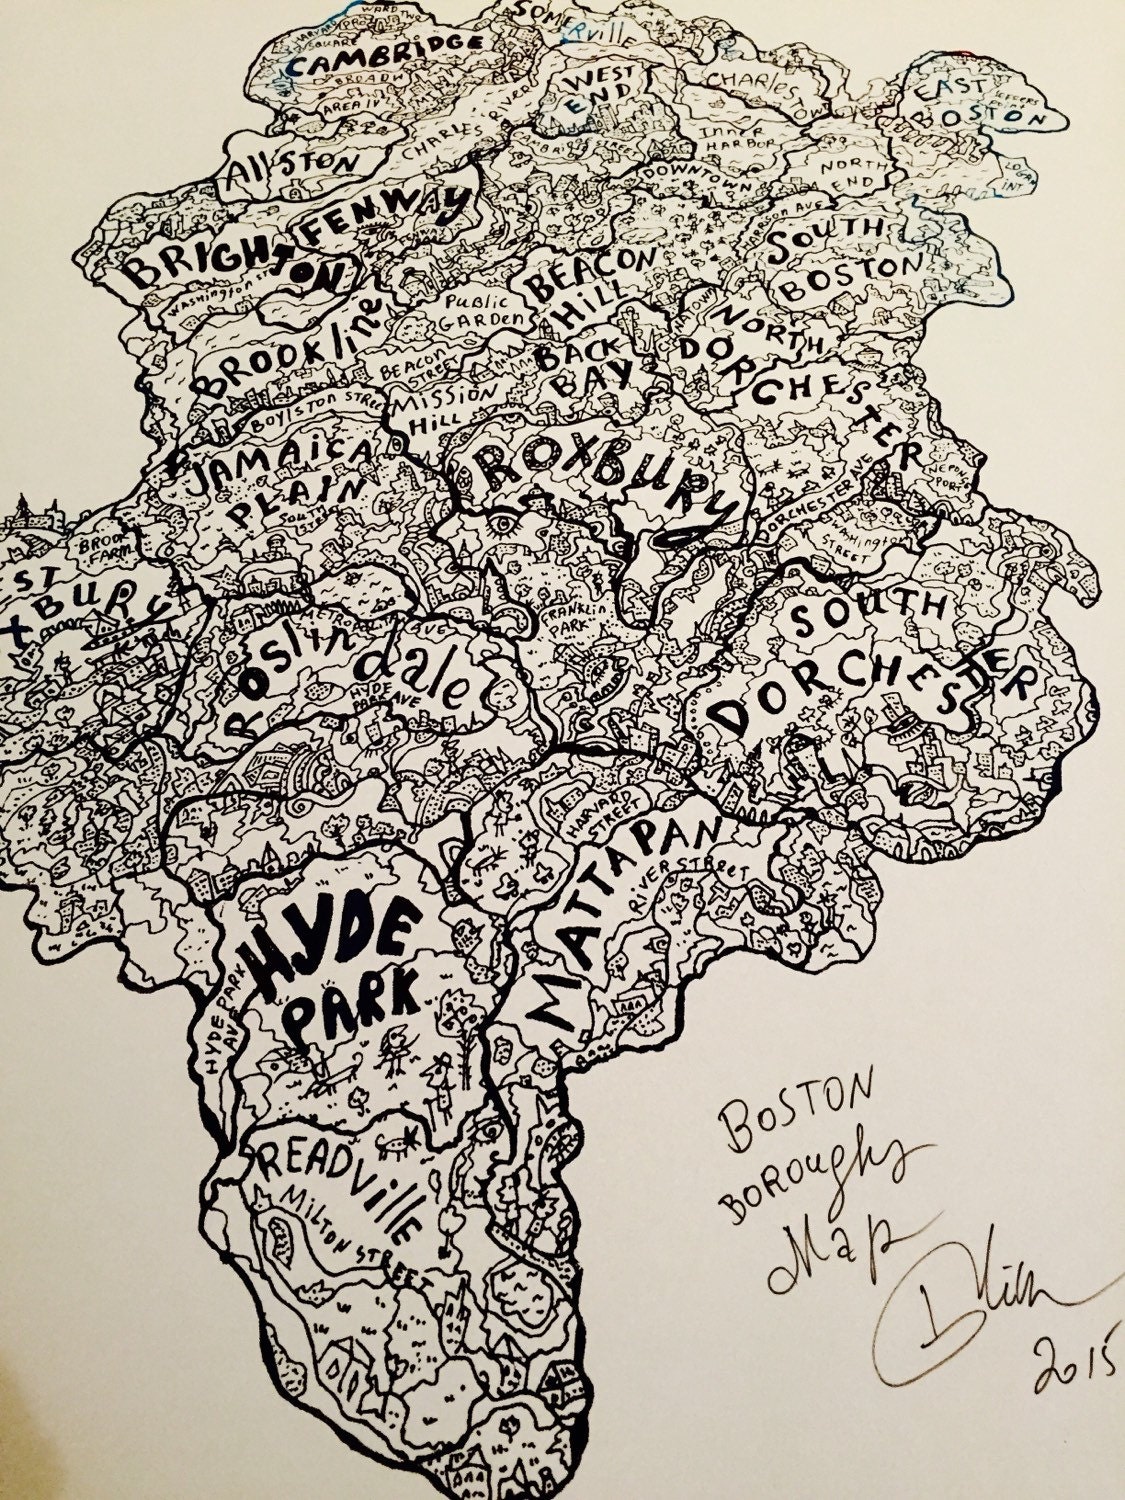 SOMERVILLE
WARD TWO
HARVARD
SQUARE
CAMBRIDGE
AREA IV
WEST
END
CHARLESTOWN
EAST
BOSTON
CHARLES RIVER
CAMBRIDGE STREET
INNER
HARBOR
ALLSTON
DOWNTOWN
NORTH
END
LOGAN
INT
FENWAY
HARRISON AVE
SOUTH
BOSTON
BRIGHTON
WASHINGTON ST
BEACON
HILL
PUBLIC
GARDEN
CHINATOWN
NORTH
DORCHESTER
BROOKLINE
BEACON
STREET
BACK
BAY
BOYLSTON STREET
MISSION
HILL
JAMAICA
PLAIN
SOUTH
STREET
ROXBURY
DORCHESTER AVE
WASHINGTON
STREET
BROOK
FARM
EST
XBURY
FRANKLIN
PARK
SOUTH
DORCHESTER
Roslindale
HYDE
PARK AVE
HARVARD
STREET
MATTAPAN
RIVER STREET
HYDE
PARK
HYDE PARK
AVE
READVille
MILTON STREET
BOSTON
BOROUGHS
Map
2015